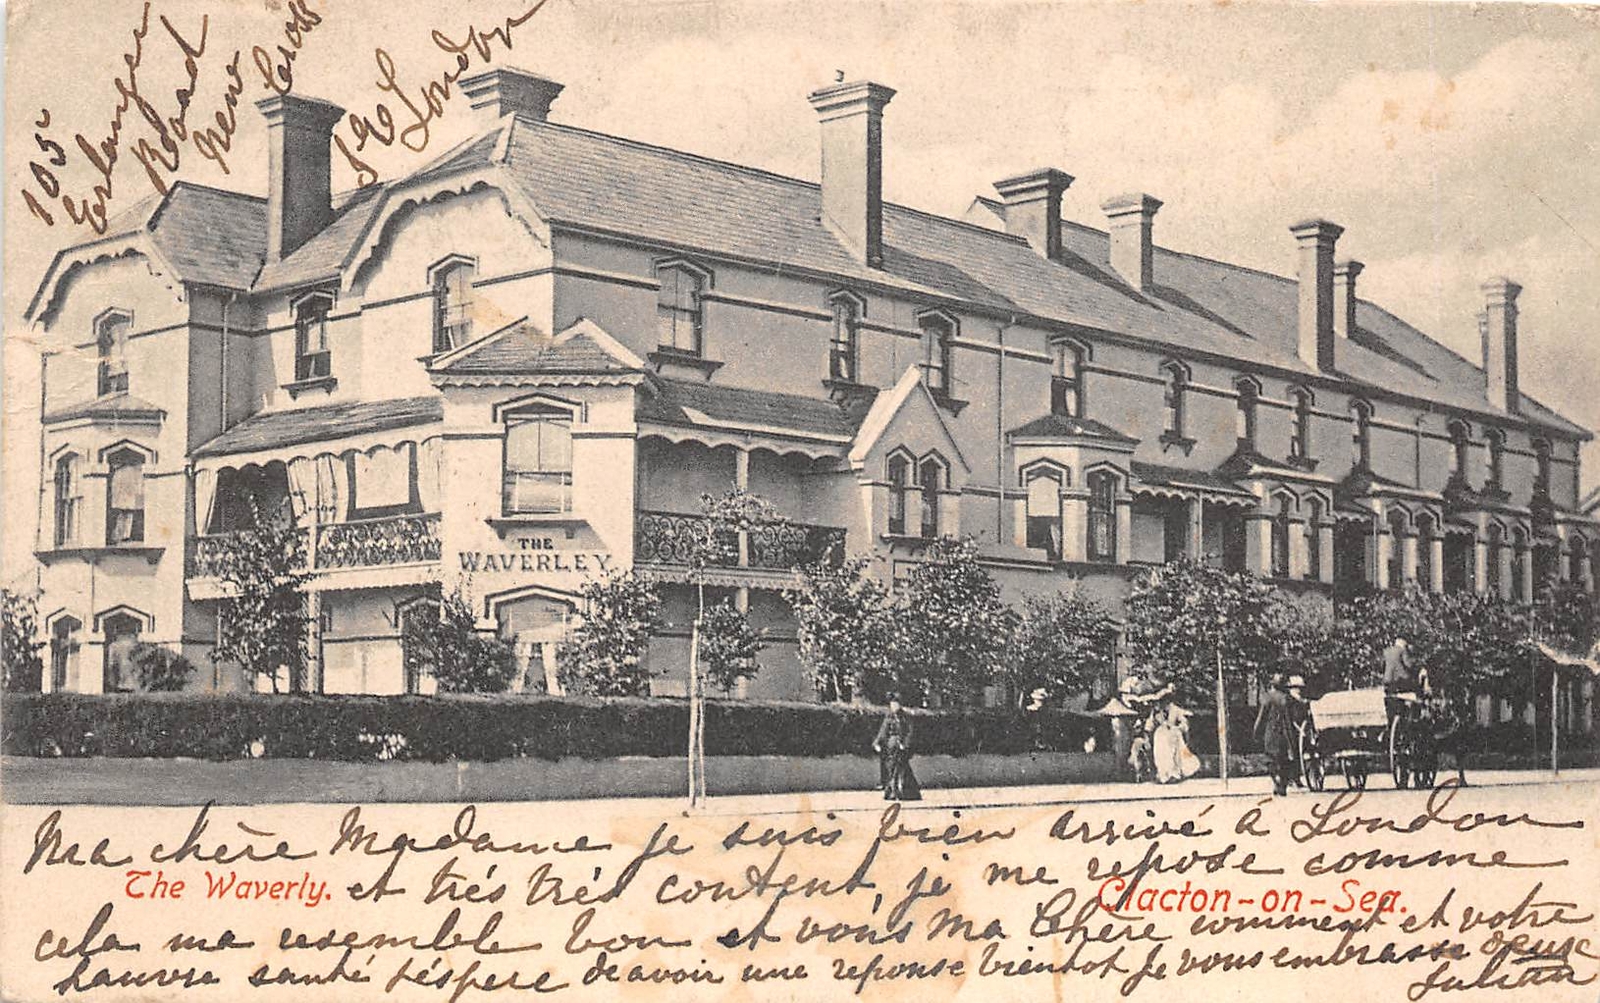 105
Erlanger
Road
New Cross
S.E. London
THE
WAVERLEY
Ma chère Madame je suis bien arrivé á London
The Waverly. et trés trés content, je me repose comme
Clacton-on-Sea.
cela ma resemble bon et vous Ma Chère comment et votre
pauvre santé j'éspere de avoir une reponse bientot Je vous embrasse
Julian